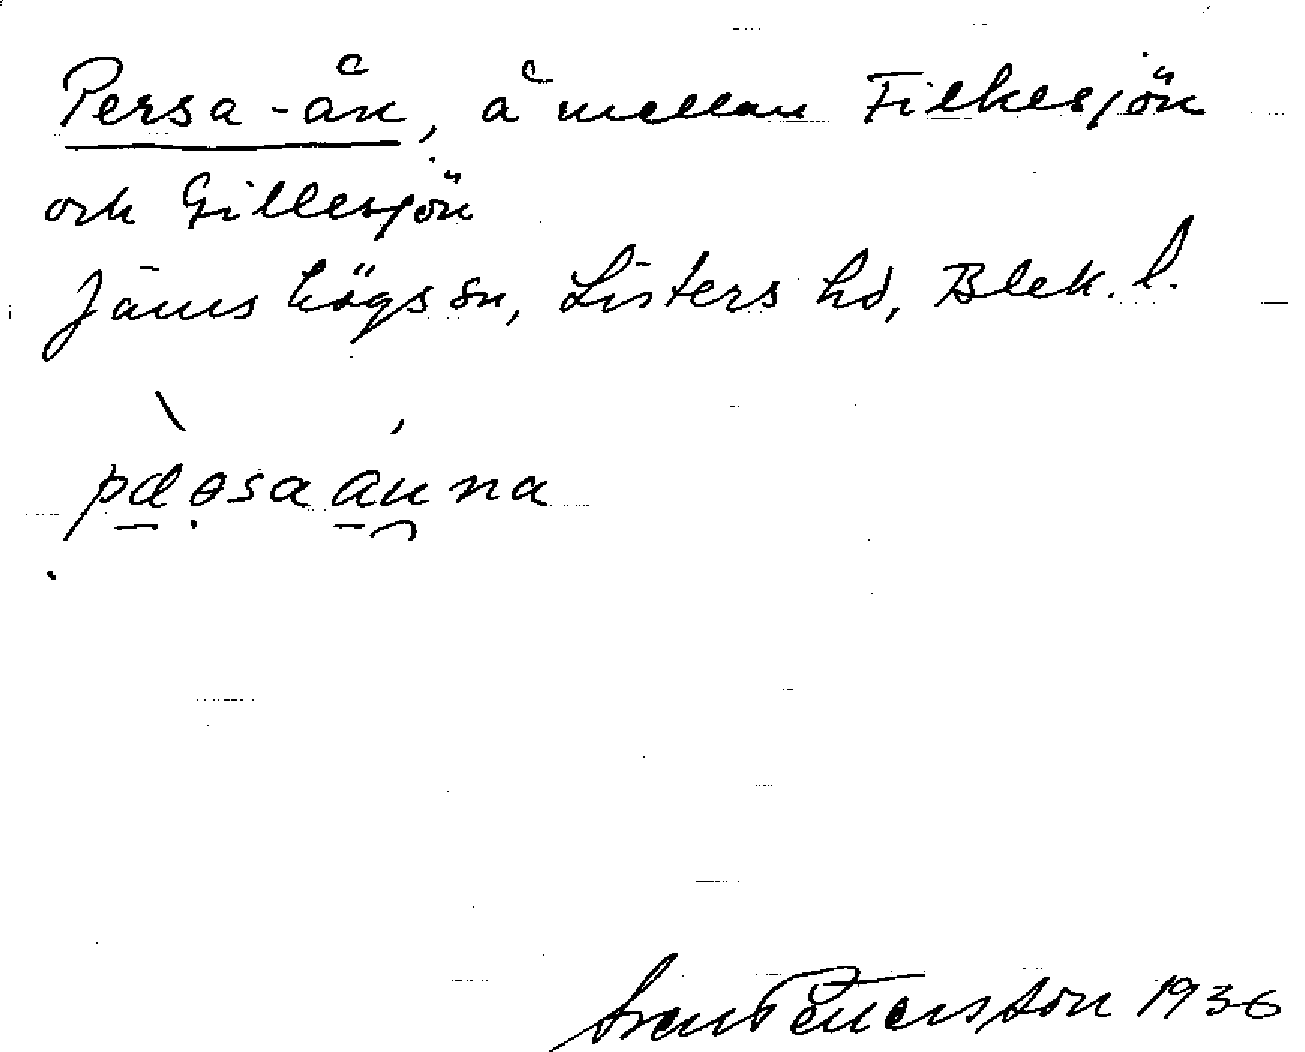 Persa-ån, å mellan Filkesjön
och Gillesjön
Jämshögs sn, Listers hd, Blek. l.
pæəsa åuna
Sven Pettersson 1936